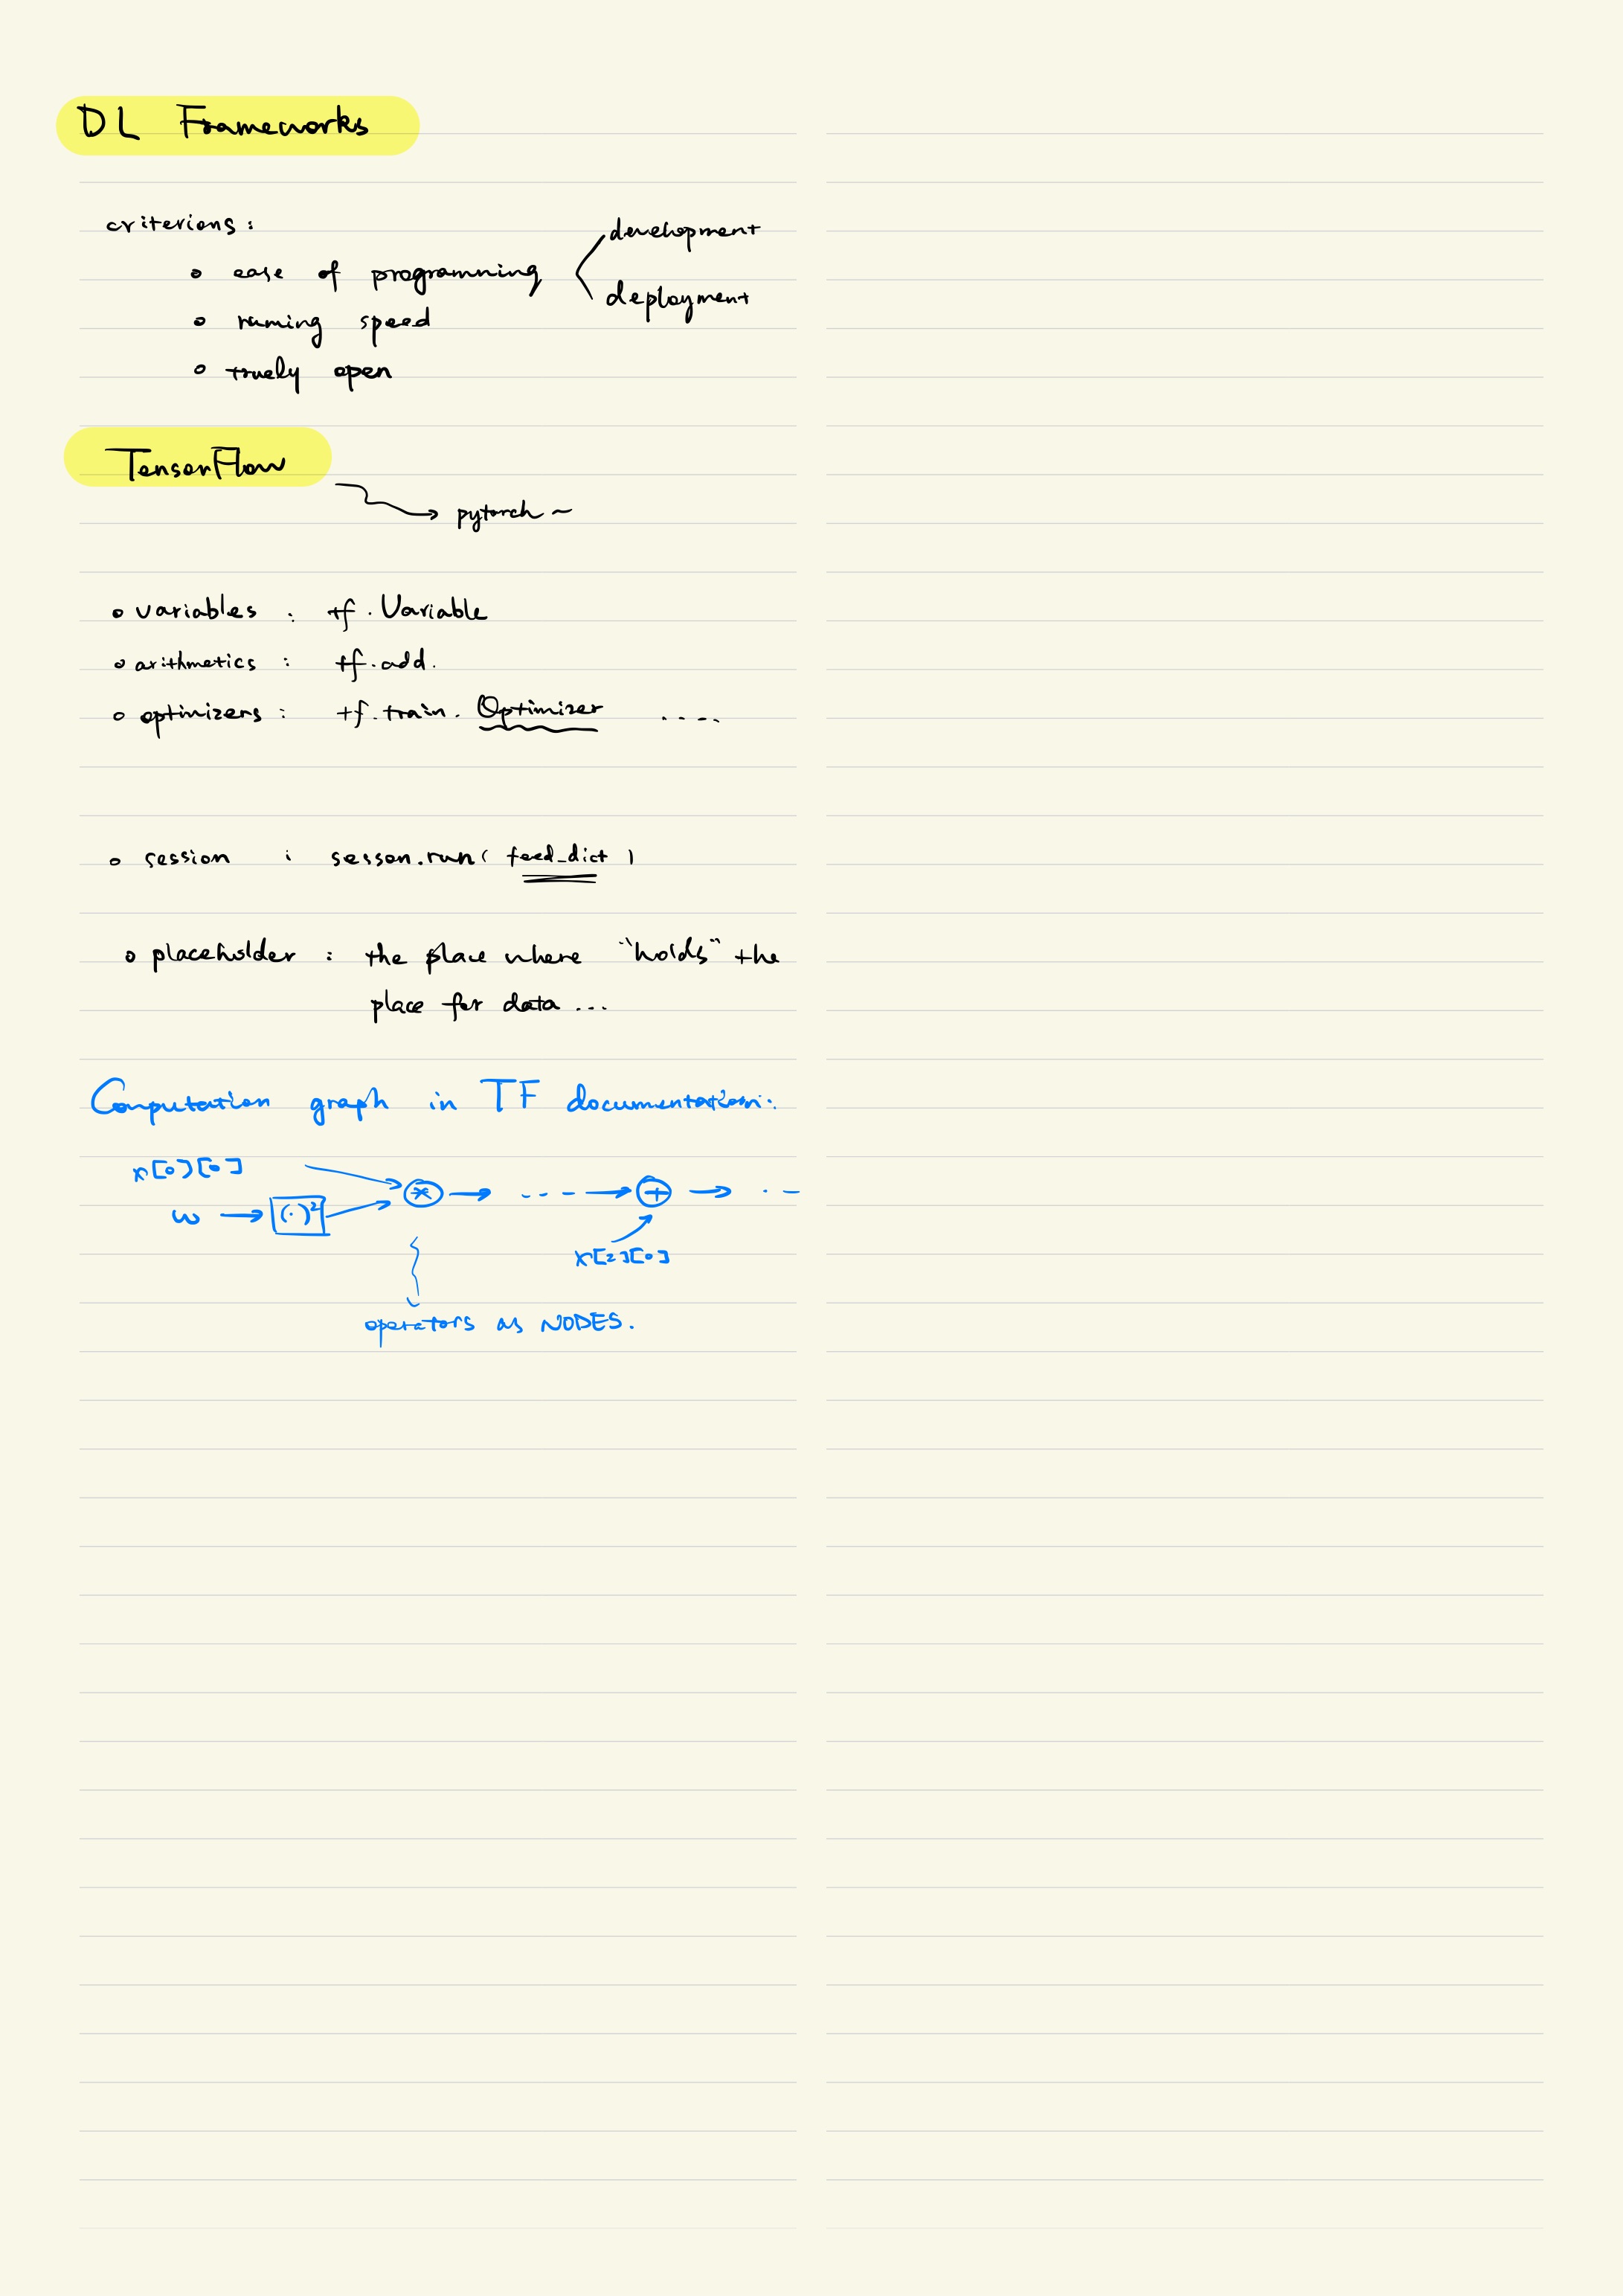 DL Frameworks
criterions:
o ease of programming
development
deployment
o running speed
o truely open
TensorFlow
pytorch ~
o variables : tf.Variable
o arithmetics : tf.add.
o optimizers : tf.train.Optimizer ....
o session : sesson.run( feed_dict )
o placeholder : the place where "holds" the
place for data ...
Computation graph in TF documentation:
x[0][0]
w → (·)² → * → ... → + → ...
x[2][0]
operators as NODES.